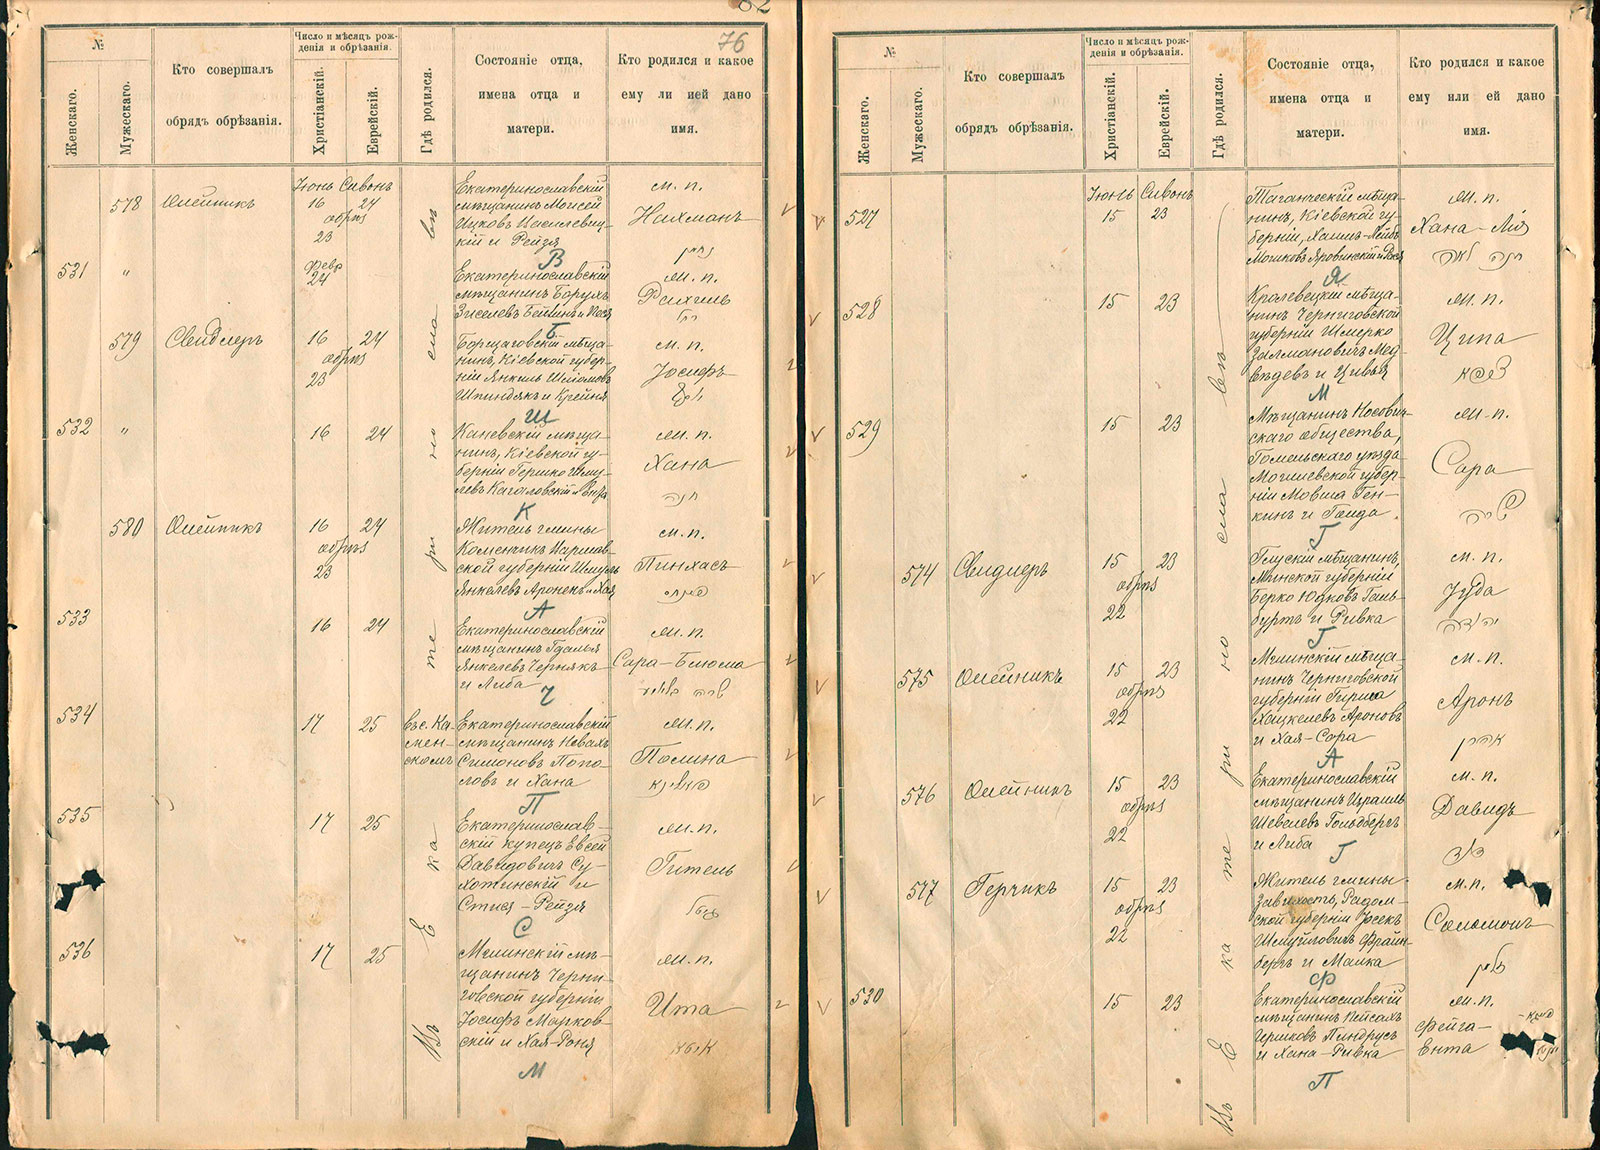 76
№
Женскаго.
Мужескаго.
Кто совершалъ
обрядъ обрѣзанія.
Число и мѣсяцъ рож-
денія и обрѣзанія.
Христіанскій.
Еврейскій.
Гдѣ родился.
Состояніе отца,
имена отца и
матери.
Кто родился и какое
ему ли ией дано
имя.
Въ Екатеринославѣ
578 Олейникъ
Іюнь Сивонъ
16 24
обрѣз
23
Екатеринославскій
мѣщанинъ Моисей
Ицковъ
кій и Рейзя
В
м. п.
Нахманъ
נחמן
531 "
Февр
24
Екатеринославскій
мѣщанинъ Борухъ
Зиселевъ
Б
м. п.
Рахиль
רחל
579 Свидлеръ
16 24
обрѣз
23
Борщаговскій мѣща-
нинъ, Кіевской губер-
ніи Янкель Шліомовъ
Шпиндякъ и Крейня
Щ
м. п.
Іосифъ
יוסף
532 "
16 24
Каневскій мѣща-
нинъ, Кіевской гу-
берніи Гершко Шму-
левъ Кагаловскій и
К
м. п.
Хана
חנה
580 Олейникъ
16 24
обрѣз
23
Житель гмины
Коменчикъ Варшав-
ской губерніи Шмуль
Янкелевъ Аронекъ и Хая
А
м. п.
Пинхасъ
פנחס
533
16 24
Екатеринославскій
мѣщанинъ Гдалья
Янкелевъ Чернякъ
и Либа
Ч
м. п.
Сара-Блюма
שרה בלומא
534
17 25
Въ с. Ка-
мен-
скомъ
Екатеринославскій
мѣщанинъ Новахъ
Симоновъ Попо-
ловъ и Хана
П
м. п.
Полина
פאלינא
535
17 25
Екатеринослав-
скій купецъ Евсей
Давидовичъ Су-
хотинскій и
Стися-Рейзя
С
м. п.
Гитель
גיטל
536
17 25
Мглинскій мѣ-
щанинъ Черни-
говской губерніи
Іосифъ Марков-
скій и Хая-Роня
М
м. п.
Ита
איטא
№
Женскаго.
Мужескаго.
Кто совершалъ
обрядъ обрѣзанія.
Число и мѣсяцъ рож-
денія и обрѣзанія.
Христіанскій.
Еврейскій.
Гдѣ родился.
Состояніе отца,
имена отца и
матери.
Кто родился и какое
ему или ей дано
имя.
Въ Екатеринославѣ
527
Іюнь Сивонъ
15 23
Таганческій мѣща-
нинъ, Кіевской гу-
берніи, Хаимъ-Лейбъ
Мошковъ Яровинскій и Рася
Я
м. п.
Хана-Лія
חנה לאה
528
15 23
Кролевецкій мѣща-
нинъ Черниговской
губерніи Шмерко
Залмановичъ Мед-
вѣдевъ и Цивья
М
м. п.
Ципа
ציפא
529
15 23
Мѣщанинъ Носович-
скаго общества,
Гомельскаго уѣзда
Могилевской губер-
ніи Мовша Ген-
кинъ и Гинда
Г
м. п.
Сара
שרה
574 Свидлеръ
15 23
обрѣз
22
Глускій мѣщанинъ,
Минской губерніи
Берко Юдковъ Галь-
буртъ и Ривка
Г
м. п.
Іуда
יהודה
575 Олейникъ
15 23
обрѣз
22
Мглинскій мѣща-
нинъ Черниговской
губерніи Гирша
Хацкелевъ Ароновъ
и Хая-Сора
А
м. п.
Аронъ
אהרן
576 Олейникъ
15 23
обрѣз
22
Екатеринославскій
мѣщанинъ Израиль
Шевелевъ Гольдбергъ
и Либа
Г
м. п.
Давидъ
דוד
577 Герчикъ
15 23
обрѣз
22
Житель гмины
Завихостъ, Радом-
ской губерніи Іосекъ
Шмуйловичъ Фрайн-
бергъ и Малка
Ф
м. п.
Соломонъ
530
15 23
Екатеринославскій
мѣщанинъ Пейсахъ
Ицковъ Пиндрусъ
и Хана-Ривка
П
м. п.
Фейга-
Ента